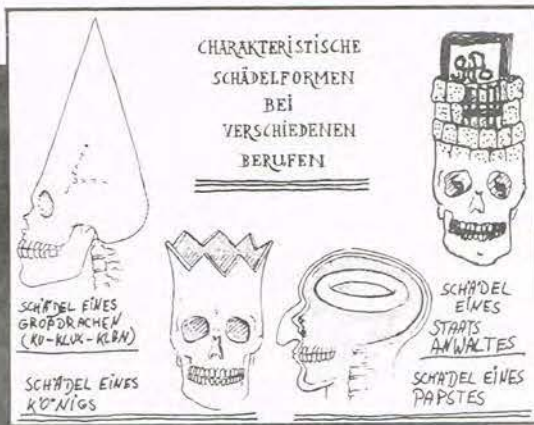 CHARAKTERISTISCHE
SCHÄDELFORMEN
BEI
VERSCHIEDENEN
BERUFEN
SCHÄDEL EINES
GROßDRACHEN
(KU-KLUX-KLAN)
SCHÄDEL EINES
KÖNIGS
SCHÄDEL
EINES
STAATS
ANWALTES
SCHÄDEL EINES
PAPSTES